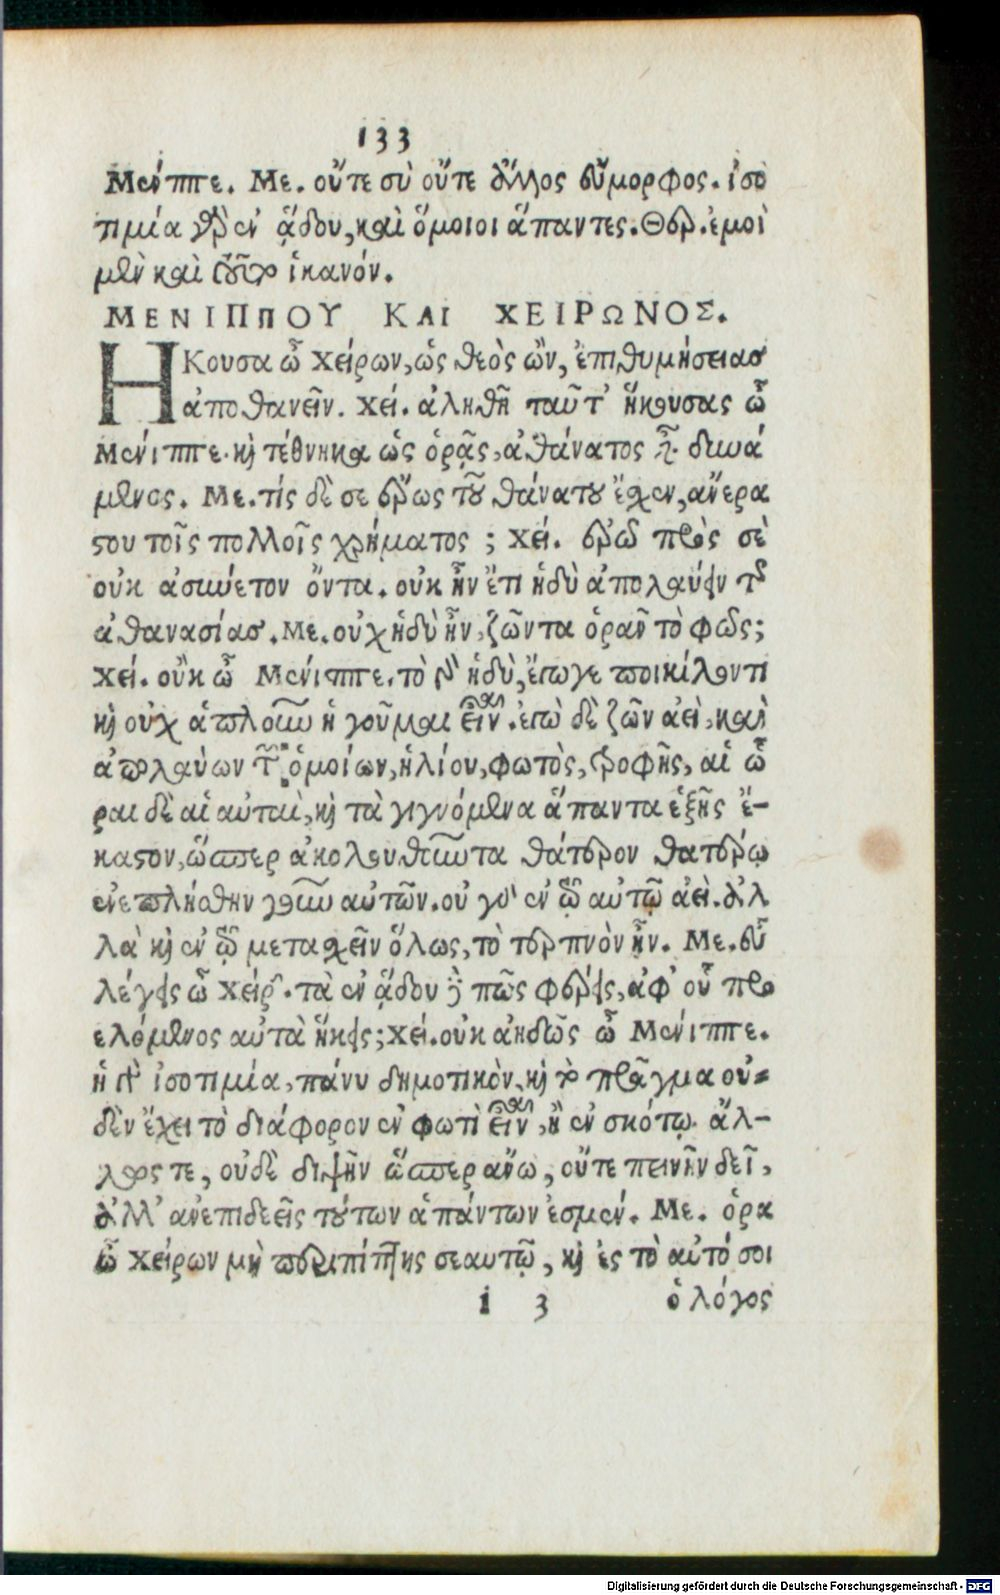 133
Μένιππε. Με. οὔτε σὺ οὔτε ἄλλος εὔμορφος. ἰσο
τιμία γὰρ ἐν ᾅδου, καὶ ὅμοιοι ἅπαντες. Θερ. ἐμοὶ
μὲν καὶ τοῦτο ἱκανόν.
ΜΕΝΙΠΠΟΥ ΚΑΙ ΧΕΙΡΩΝΟΣ.
ΗΚουσα ὦ Χείρων, ὡς θεὸς ὢν, ἐπιθυμήσειας
ἀποθανεῖν. Χεί. ἀληθῆ ταῦτ' ἤκουσας ὦ
Μένιππε. καὶ τέθνηκα ὡς ὁρᾷς, ἀθάνατος εἶναι δυνά
μενος. Με. τίς δὲ σε ἔρως τοῦ θάνατου ἔχεν, ἀνερα
στου τοῖς πολλοῖς χρήματος; Χεί. ἐρῶ πρὸς σὲ
οὐκ ἀσύνετον ὄντα. οὐκ ἦν ἔτι ἡδὺ ἀπολαύειν τῆς
ἀθανασίας. Με. οὐχ ἡδὺ ἦν, ζῶντα ὁρᾶν τὸ φῶς;
Χεί. οὒκ ὦ Μένιππε. τὸ γὰρ ἡδὺ, ἔγωγε ποικίλον τι
καὶ οὐχ ἁπλοῦν ἡγοῦμαι εἶναι. ἐγὼ δὲ ζῶν ἀεὶ, καὶ
ἀπολαύων τῶν ὁμοίων, ἡλίου, φωτὸς, τροφῆς, αἱ ὧ
ραι δὲ αἱ αὐταὶ, καὶ τὰ γιγνόμενα ἅπαντα ἑξῆς ἕ-
καστον, ὥσπερ ἀκολουθοῦντα θάτερον θατέρῳ
ἐνεπλήσθην γοῦν αὐτῶν. οὐ γὰρ ἐν τῷ αὐτῷ ἀεὶ. ἀλ
λὰ καὶ ἐν τῷ μετασχεῖν ὅλως, τὸ τερπνὸν ἦν. Με. εὖ
λέγεις ὦ Χείρων. τὰ ἐν ᾅδου δὲ πῶς φέρεις, ἀφ' οὗ προ
ελόμενος αὐτὰ ἥκεις; Χεί. οὐκ ἀηδῶς ὦ Μένιππε.
ἡ γὰρ ἰσοτιμία, πάνυ δημοτικὸν, καὶ τὸ πρᾶγμα οὐ-
δὲν ἔχει τὸ διάφορον ἐν φωτὶ εἶναι, ἢ ἐν σκότῳ. ἄλ-
λως τε, οὐδὲ διψῆν ὥσπερ ἄνω, οὔτε πεινῆν δεῖ,
ἀλλ' ἀνεπιδεεῖς τούτων ἁπάντων ἐσμέν. Με. ὅρα
ὦ Χείρων μὴ περιπίπτῃς σεαυτῷ, καὶ ἐς τὸ αὐτό σοι
i 3 ὁ λόγος
Digitalisierung gefördert durch die Deutsche Forschungsgemeinschaft - DFG